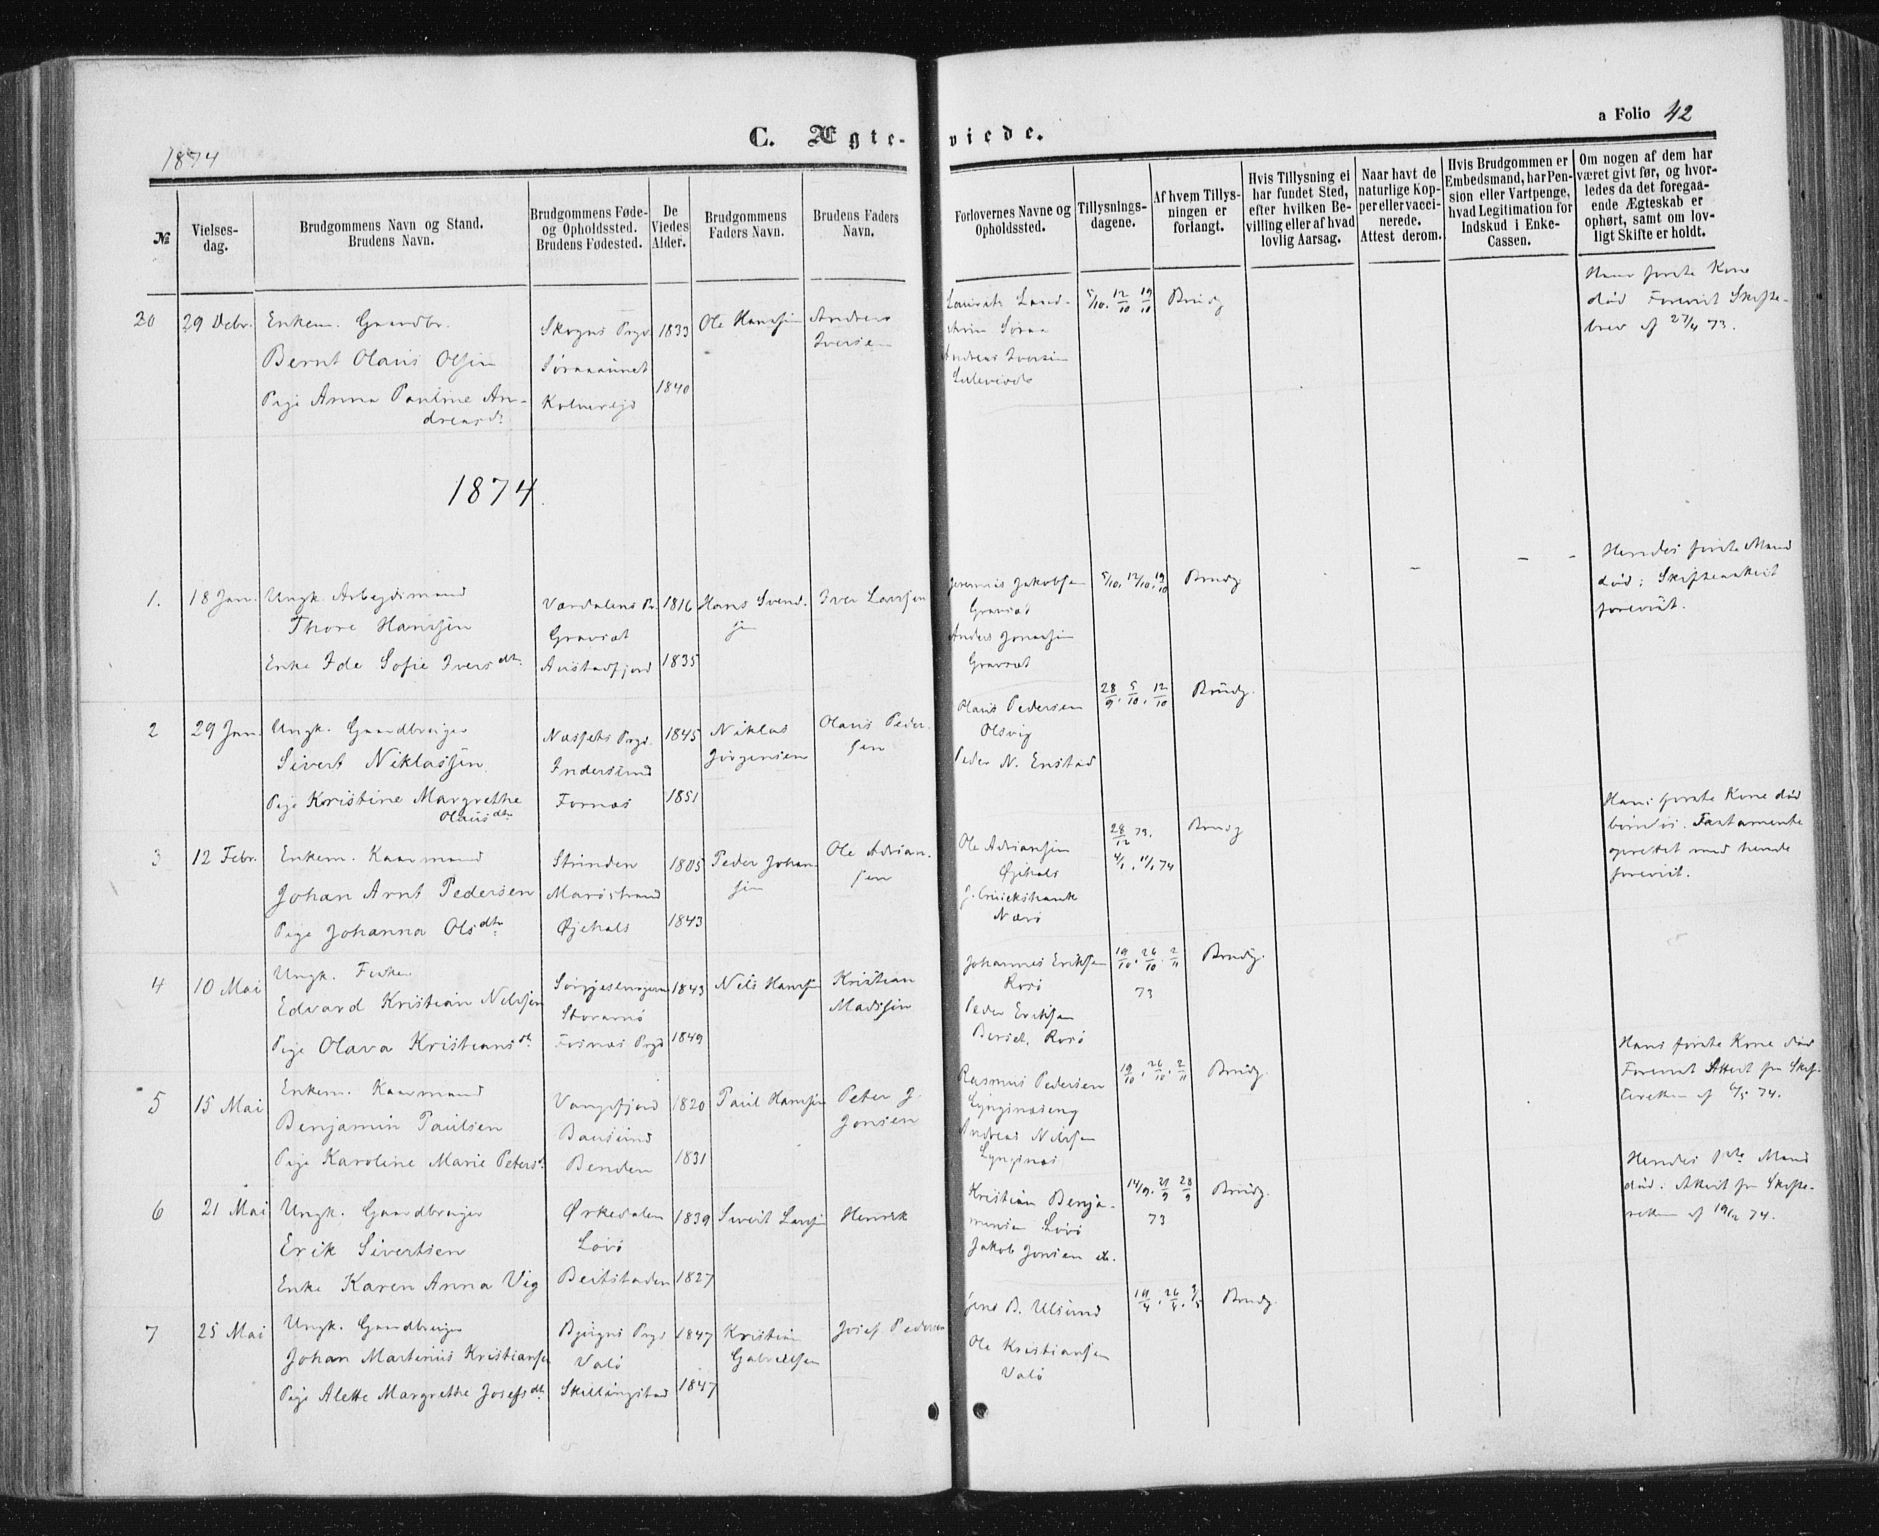 1874
C. Ægte-viede.
a Folio 42
№
Vielses-dag.
Brudgommens Navn og Stand.
Brudens Navn.
Brudgommens Føde- og Opholdssted.
Brudens Fødested.
De Viedes Alder.
Brudgommens Faders Navn.
Brudens Faders Navn.
Forlovernes Navne og Opholdssted.
Tillysnings-dagene.
Af hvem Tillys-ningen er forlangt.
Hvis Tillysning ei har fundet Sted, efter hvilken Be-villing eller af hvad lovlig Aarsag.
Naar havt de naturlige Kop-per eller vacci-nerede.
Attest derom.
Hvis Brudgommen er Embedsmand, har Pen-sion eller Vartpenge, hvad Legitimation for Indskud i Enke-Cassen.
Om nogen af dem har været givt før, og hvor-ledes da det foregaa-ende Ægteskab er ophørt, samt om lov-ligt Skifte er holdt.
20
29 Debr.
Enkem. Gaardbr.
Bernt Olaus Olsen
Pige Anna Pauline An-
dreasdr
Skogns Prgd
Kolvereid
1833
1840
Ole Hanssen
Andreas
Iversen
Andreas Iversen
5/10. 12/10 19/10
Brudg
Hans første Kone
død Forevist Skifte-
brev af 27/4 73.
1874
1.
18 Jan.
Ungk. Arbeidsmand
Thore Hanssen
Enke Ide Sofie Iversdtr
Værdalens Pr.
Graviat
1816
1835
Hans Svend-
sen
Iver Larssen
Jeremias Jakobsen
Anders Jonassen
5/10. 12/10. 19/10
Brudg
Hendes første Mand
død; Skifteattest
forevist.
2
29 Jan.
Ungk. Gaardbruger
Sivert Niklassen
Pige Kristine Margrethe
Olausdtr
Næssets Prgd.
Indersund
Fornæs
1845
1851
Niklas
Jørgensen
Olaus Peder-
sen
Olaus Pedersen
Olsvig
Peder N. Enstad
28/9. 5/10. 12/10
Brudg.
3
12 Febr.
Enkem. Kaarmand
Johan Arnt Pedersen
Pige Johanna Olsdtr
Strinden
Marøstrand
Øjehals
1805
1843
Peder Johan-
sen
Ole Adrian-
sen
Ole Adriansen
Øjehals
J. Cruickshank
Nærø
28/12 73.
4/1. 11/1 74
Brudg
Hans første Kone død
Testamente
oprettet med hende
forevist.
4
10 Mai
Ungk. Fisker
Edvard Kristian Nilssen
Pige Olava Kristiansdt
Fosnæs Prgd
1843
1849
Nils Hanssen
Kristian
Madssen
Johannes Eriksen
Rorø
Peder Eriksen
Rorø
19/10. 26/10. 2/11
73
Brudg.
5
15 Mai
Enkem. Kaarmand
Benjamin Paulsen
Pige Karoline Marie Petersd
Vangsfjord
Bausund
Benden
1820
1831
Paul Hanssen
Peter J.
Jonsen
Rasmus Pedersen
Andreas Nilssen
Lyngsnæs
19/10. 26/10. 2/11
Brudg.
Hans første Kone død
Forevist Attest fra Skif-
teretten af 6/5 74.
6
21 Mai
Ungk. Gaardbruger
Erik Sivertsen
Enke Karen Anna Vig
Ørkedalen
Løvø
Beitstaden
1839
1827
Sivert Larssen
Henrik
Kristian Benja-
minsen Løvø
Jakob Jonsen do.
14/9. 21/9 28/9
73
Brudg.
Hendes 1ste Mand
død. Attest fra Skifte-
retten af 19/2 74.
7
25 Mai
Ungk. Gaardbruger
Johan Martinius Kristiansen
Pige Alette Margrethe Josefsdtr
Bjugns Prgd
Valø
Skillingstad
1847
1847
Kristian
Gabrielsen
Josef Pedersen
Jens B. Ulsund
Ole Kristiansen
Valø
19/4. 26/4. 3/5
Brudg.